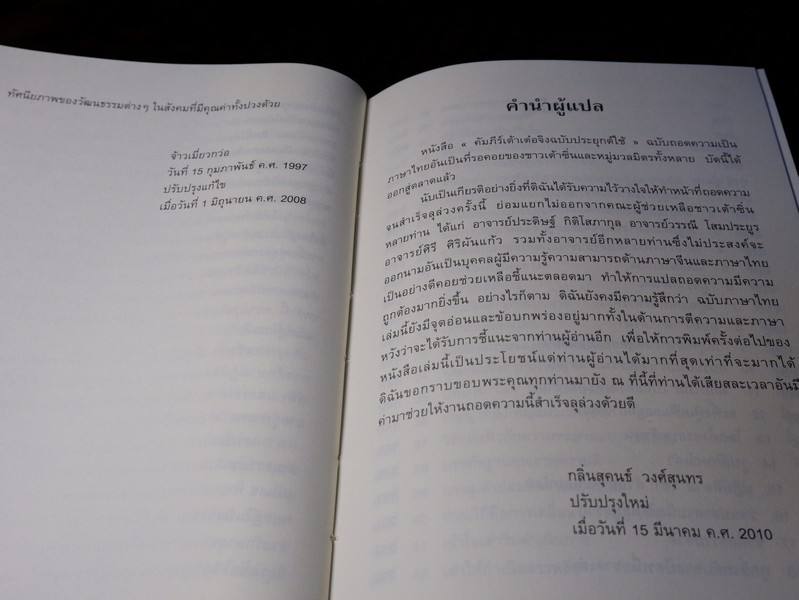 ทัศนียภาพของวัฒนธรรมต่างๆ ในสังคมที่มีคุณค่าทั้งปวงด้วย
จ้าวเมี่ยวกว่อ
วันที่ 15 กุมภาพันธ์ ค.ศ. 1997
ปรับปรุงแก้ไข
เมื่อวันที่ 1 มิถุนายน ค.ศ. 2008
คำนำผู้แปล
หนังสือ « คัมภีร์เต้าเต๋อจิงฉบับประยุกต์ใช้ » ฉบับถอดความเป็น
ภาษาไทยอันเป็นที่รอคอยของชาวเต้าซิ่นและหมู่มวลมิตรทั้งหลาย บัดนี้ได้
ออกสู่ตลาดแล้ว
นับเป็นเกียรติอย่างยิ่งที่ดิฉันได้รับความไว้วางใจให้ทำหน้าที่ถอดความ
จนสำเร็จลุล่วงครั้งนี้ ย่อมแยกไม่ออกจากคณะผู้ช่วยเหลือชาวเต้าซิ่น
หลายท่าน ได้แก่ อาจารย์ประดิษฐ์ กิติโสภากุล อาจารย์วรรณี โสมประยูร
อาจารย์ศิรี ศิริผันแก้ว รวมทั้งอาจารย์อีกหลายท่านซึ่งไม่ประสงค์จะ
ออกนามอันเป็นบุคคลผู้มีความรู้ความสามารถด้านภาษาจีนและภาษาไทย
เป็นอย่างดีคอยช่วยเหลือชี้แนะตลอดมา ทำให้การแปลถอดความมีความ
ถูกต้องมากยิ่งขึ้น อย่างไรก็ตาม ดิฉันยังคงมีความรู้สึกว่า ฉบับภาษาไทย
เล่มนี้ยังมีจุดอ่อนและข้อบกพร่องอยู่มากทั้งในด้านการตีความและภาษา
หวังว่าจะได้รับการชี้แนะจากท่านผู้อ่านอีก เพื่อให้การพิมพ์ครั้งต่อไปของ
หนังสือเล่มนี้เป็นประโยชน์แด่ท่านผู้อ่านได้มากที่สุดเท่าที่จะมากได้
ดิฉันขอกราบขอบพระคุณทุกท่านมายัง ณ ที่นี้ที่ท่านได้เสียสละเวลาอันมี
ค่ามาช่วยให้งานถอดความนี้สำเร็จลุล่วงด้วยดี
กลิ่นสุคนธ์ วงศ์สุนทร
ปรับปรุงใหม่
เมื่อวันที่ 15 มีนาคม ค.ศ. 2010